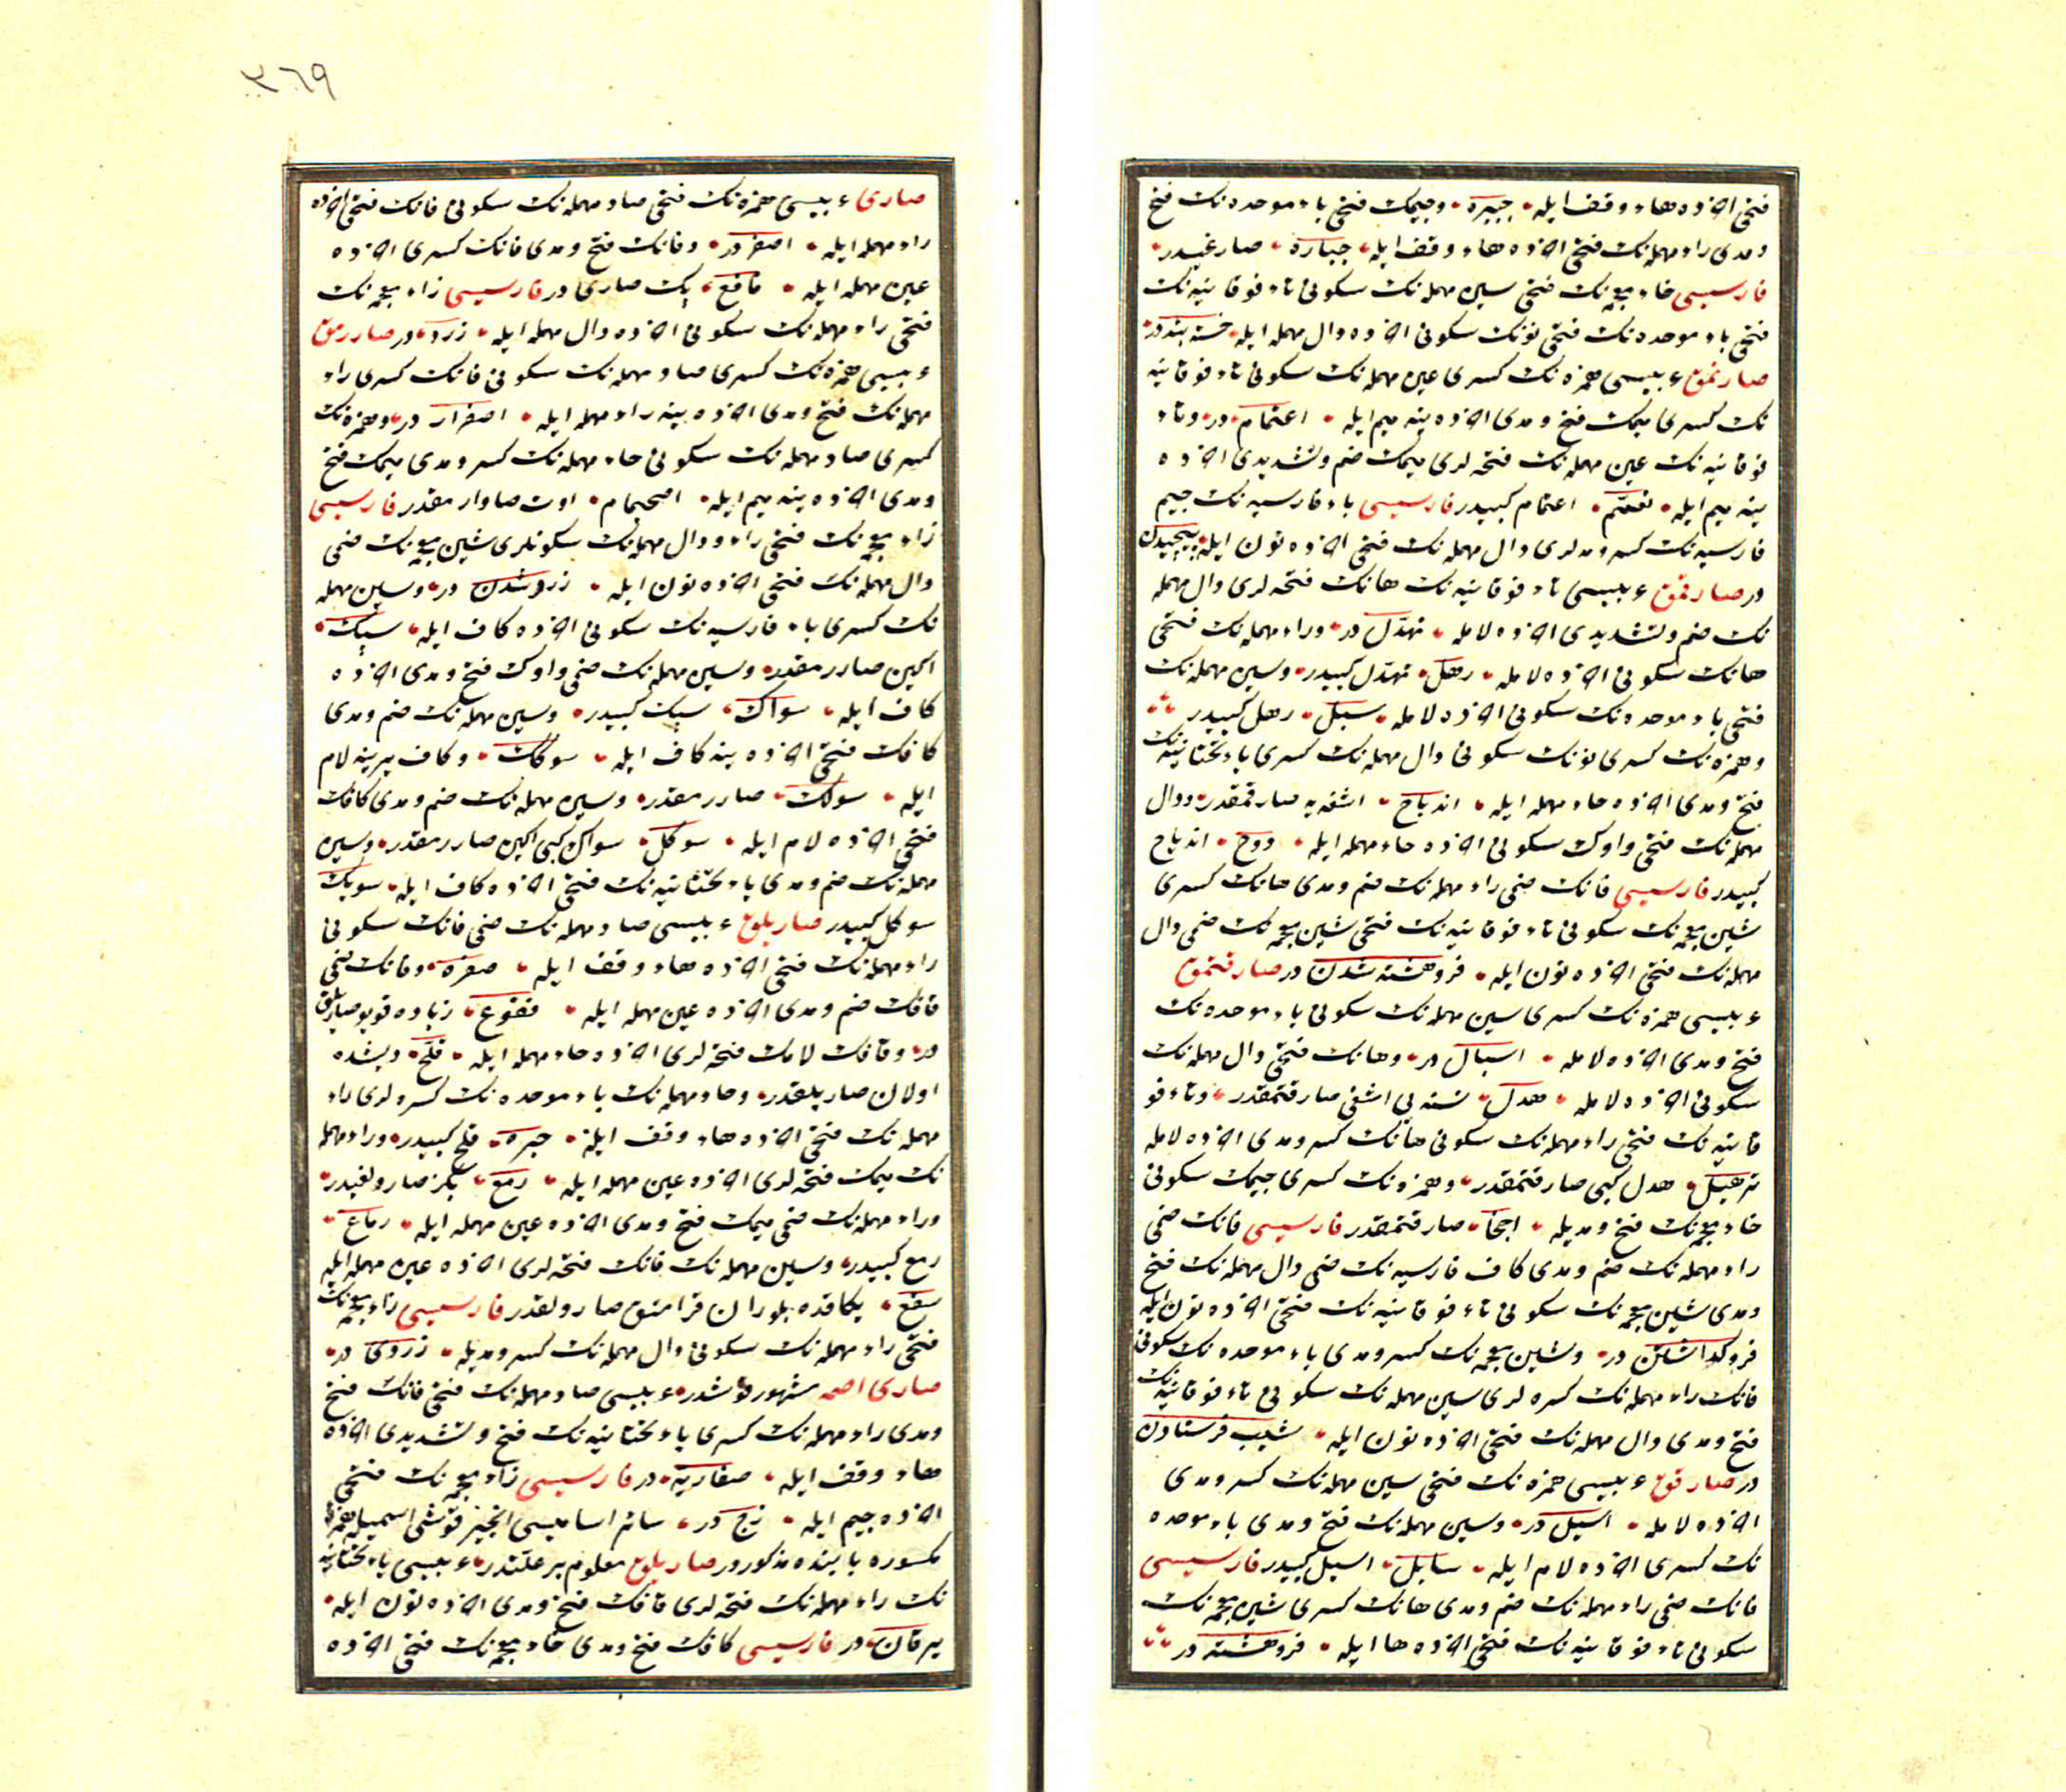 فتحی آخرده هاء وقف ایله جبیره وجیمك فتحی باء موحده نك فتح
ومدی راء مهمله نك فتحی آخرده هاء وقف ایله جباره صارغیدر
فارسیسی خاء معجمه نك فتحی سین مهمله نك سكونی تاء فوقانیه نك
فتحی باء موحده نك فتحی نونك سكونی آخرده دال مهمله ایله خسته بنددر
صارنمق عربیسی همزه نك كسری عین مهمله نك سكونی تاء فوقانیه
نك كسری میمك فتح ومدی آخرده ینه میم ایله اعتمام در وتاء
فوقانیه نك عین مهمله نك فتحه لری میمك ضم وتشدیدی آخرده
ینه میم ایله تعمّم اعتمام كبیدر فارسیسی باء فارسیه نك جیم
فارسیه نك كسر ومدلری دال مهمله نك فتحی آخرده نون ایله پیچیدن
در صارقمق عربیسی تاء فوقانیه نك هانك فتحه لری دال مهمله
نك ضم وتشدیدی آخرده لامله تهدّل در وراء مهمله نك فتحی
هانك سكونی آخرده لامله رهل تهدّل كبیدر وسین مهمله نك
فتحی باء موحده نك سكونی آخرده لامله سبل رهل كبیدر
وهمزه نك كسری نونك سكونی دال مهمله نك كسری یاء تحتانیه نك
فتح ومدی آخرده حاء مهمله ایله اندیاح اشغه یه صارقمقدر ودال
مهمله نك فتحی واوك سكونی آخرده حاء مهمله ایله دوح اندیاح
كبیدر فارسیسی فانك ضمی راء مهمله نك ضم ومدی هانك كسری
شین معجمه نك سكونی تاء فوقانیه نك فتحی شین معجمه نك ضمی دال
مهمله نك فتحی آخرده نون ایله فروهشته شدن در صارقتمق
عربیسی همزه نك كسری سین مهمله نك سكونی باء موحده نك
فتح ومدی آخرده لامله اسبال در وهانك فتحی دال مهمله نك
سكونی آخرده لامله هدل نسنه یی اشغی صارقتمقدر وتاء فو
قانیه نك فتحی راء مهمله نك سكونی هانك كسر ومدی آخرده لامله
ترهیل هدل كبی صارقتمقدر وهمزه نك كسری جیمك سكونی
خاء معجمه نك فتح ومدیله اجخا صارقتمقدر فارسیسی فانك ضمی
راء مهمله نك ضم ومدی كاف فارسیه نك ضمی دال مهمله نك فتح
ومدی شین معجمه نك سكونی تاء فوقانیه نك فتحی آخرده نون ایله
فروكداشتن در وشین معجمه نك كسر ومدی باء موحده نك سكونی
فانك راء مهمله نك كسره لری سین مهمله نك سكونی تاء فوقانیه نك
فتح ومدی دال مهمله نك فتحی آخرده نون ایله شیب فرستادن
در صارقق عربیسی همزه نك فتحی سین مهمله نك كسر ومدی
آخرده لامله اسیل در وسین مهمله نك فتح ومدی باء موحده
نك كسری آخرده لام ایله سابل اسیل كبیدر فارسیسی
فانك ضمی راء مهمله نك ضم ومدی هانك كسری شین معجمه نك
سكونی تاء فوقانیه نك فتحی آخرده ها ایله فروهشته در
٣٦٩
صاری عربیسی همزه نك فتحی صاد مهمله نك سكونی فانك فتحی آخرده
راء مهمله ایله اصفر در وفانك فتح ومدی قافك كسری آخرده
عین مهمله ایله فاقع پك صاری در فارسیسی زاء معجمه نك
فتحی راء مهمله نك سكونی آخرده دال مهمله ایله زرد در صاررمق
عربیسی همزه نك كسری صاد مهمله نك سكونی فانك كسری راء
مهمله نك فتح ومدی آخرده ینه راء مهمله ایله اصفرار در وهمزه نك
كسری صاد مهمله نك سكونی حاء مهمله نك كسر ومدی میمك فتح
ومدی آخرده ینه میم ایله اصحیمام اوت صاررمقدر فارسیسی
زاء معجمه نك فتحی راء ودال مهمله نك سكونلری شین معجمه نك ضمی
دال مهمله نك فتحی آخرده نون ایله زرد شدن در وسین مهمله
نك كسری باء فارسیه نك سكونی آخرده كاف ایله سپك
اكین صاررمقدر وسین مهمله نك ضمی واوك فتح ومدی آخرده
كاف ایله سواك سپك كبیدر وسین مهمله نك ضم ومدی
كافك فتحی آخرده ینه كاف ایله سوكك وكاف یرینه لام
ایله سولك صاررمقدر وسین مهمله نك ضم ومدی كافك
فتحی آخرده لام ایله سوكل سواك كبی اكین صاررمقدر وسین
مهمله نك ضم ومدی یاء تحتانیه نك فتحی آخرده كاف ایله سویك
سوكل كبیدر صاریلق عربیسی صاد مهمله نك ضمی فانك سكونی
راء مهمله نك فتحی آخرده هاء وقف ایله صفره وفانك ضمی
قافك ضم ومدی آخرده عین مهمله ایله فقوع زیاده قویو صاریلق
در وقافك لامك فتحه لری آخرده حاء مهمله ایله قلح دیشده
اولان صاریلقدر وحاء مهمله نك باء موحده نك كسره لری راء
مهمله نك فتحی آخرده هاء وقف ایله حبره قلح كبیدر وراء مهمله
نك میمك فتحه لری آخرده عین مهمله ایله رمع بكز صارولغیدر
وراء مهمله نك ضمی میمك فتح ومدی آخرده عین مهمله ایله رماع
رمع كبیدر وسین مهمله نك فانك فتحه لری آخرده عین مهمله ایله
سفع یكاقده بلوران قرامتق صارولقدر فارسیسی زاء معجمه نك
فتحی راء مهمله نك سكونی دال مهمله نك كسر ومدیله زردی در
صاری اصمه مشهور قوشدر عربیسی صاد مهمله نك فتحی فانك فتح
ومدی راء مهمله نك كسری یاء تحتانیه نك فتح وتشدیدی آخرده
هاء وقف ایله صفاریه در فارسیسی زاء معجمه نك فتحی
آخرده جیم ایله زج در سائر اسامیسی انجیر قوشی اسمیله همزهٔ
مكسوره بابنده مذكوردر صاریلق معلوم بر علتدر عربیسی یاء تحتانیه
نك راء مهمله نك فتحه لری قافك فتح ومدی آخرده نون ایله
یرقان در فارسیسی كافك فتح ومدی خاء معجمه نك فتحی آخرده